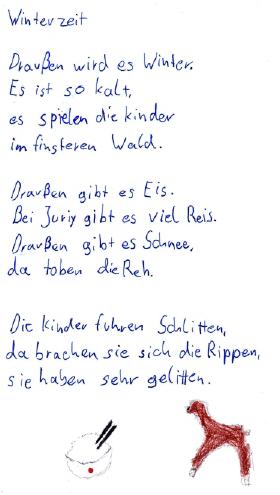 Winterzeit
Draußen wird es Winter.
Es ist so kalt,
es spielen die kinder
im finsteren Wald.
Draußen gibt es Eis.
Bei Juriy gibt es viel Reis.
Draußen gibt es Schnee,
da toben die Reh.
Die kinder fuhren Schlitten,
da brachen sie sich die Rippen,
sie haben sehr gelitten.